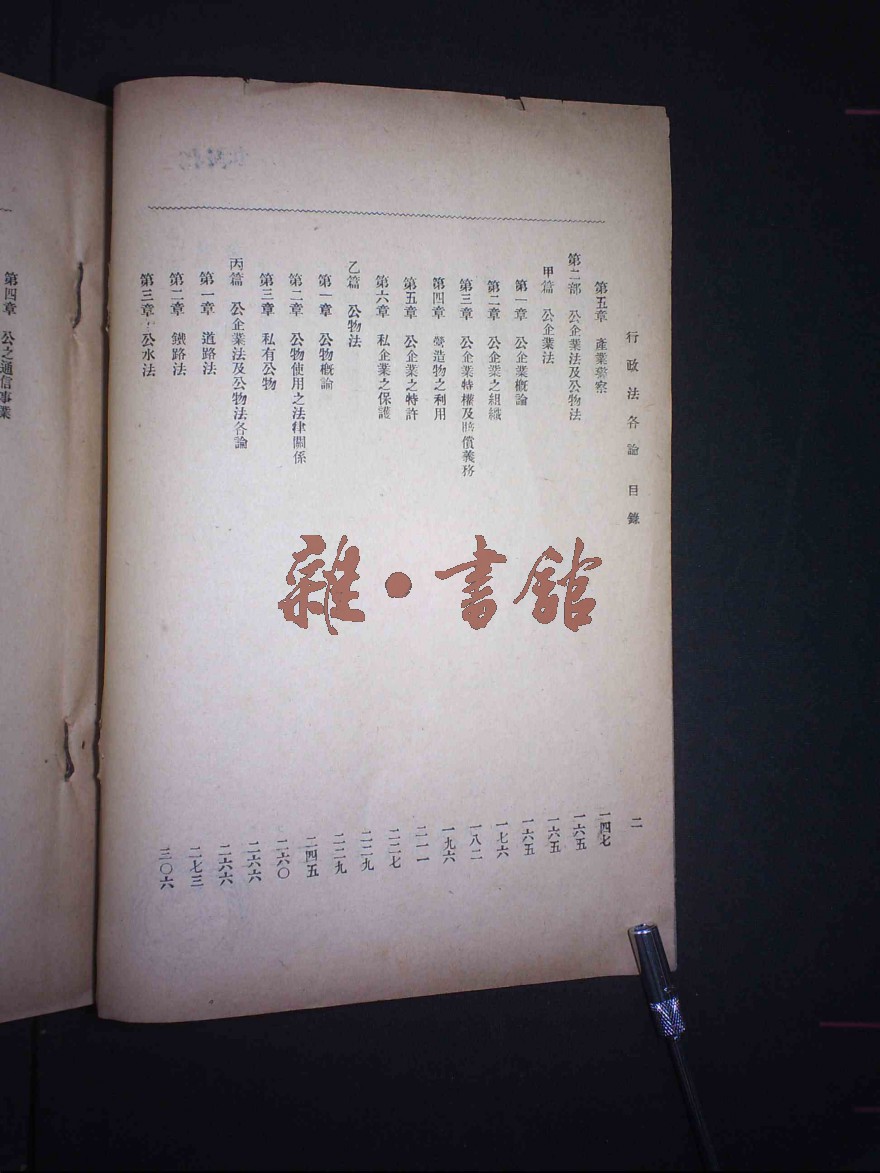 行政法各論 目錄 二
第五章 產業警察 一四七
第二部 公企業法及公物法 一六五
甲篇 公企業法 一六五
第一章 公企業概論 一六五
第二章 公企業之組織 一七六
第三章 公企業特權及賠償義務 一八二
第四章 營造物之利用 一九六
第五章 公企業之特許 二一一
第六章 私企業之保護 二二七
乙篇 公物法 二二九
第一章 公物概論 二二九
第二章 公物使用之法律關係 二四五
第三章 私有公物 二六〇
丙篇 公企業法及公物法各論 二六六
第一章 道路法 二六六
第二章 鐵路法 二七三
第三章 公水法 三〇六
第四章 公之通信事業
雜·書館